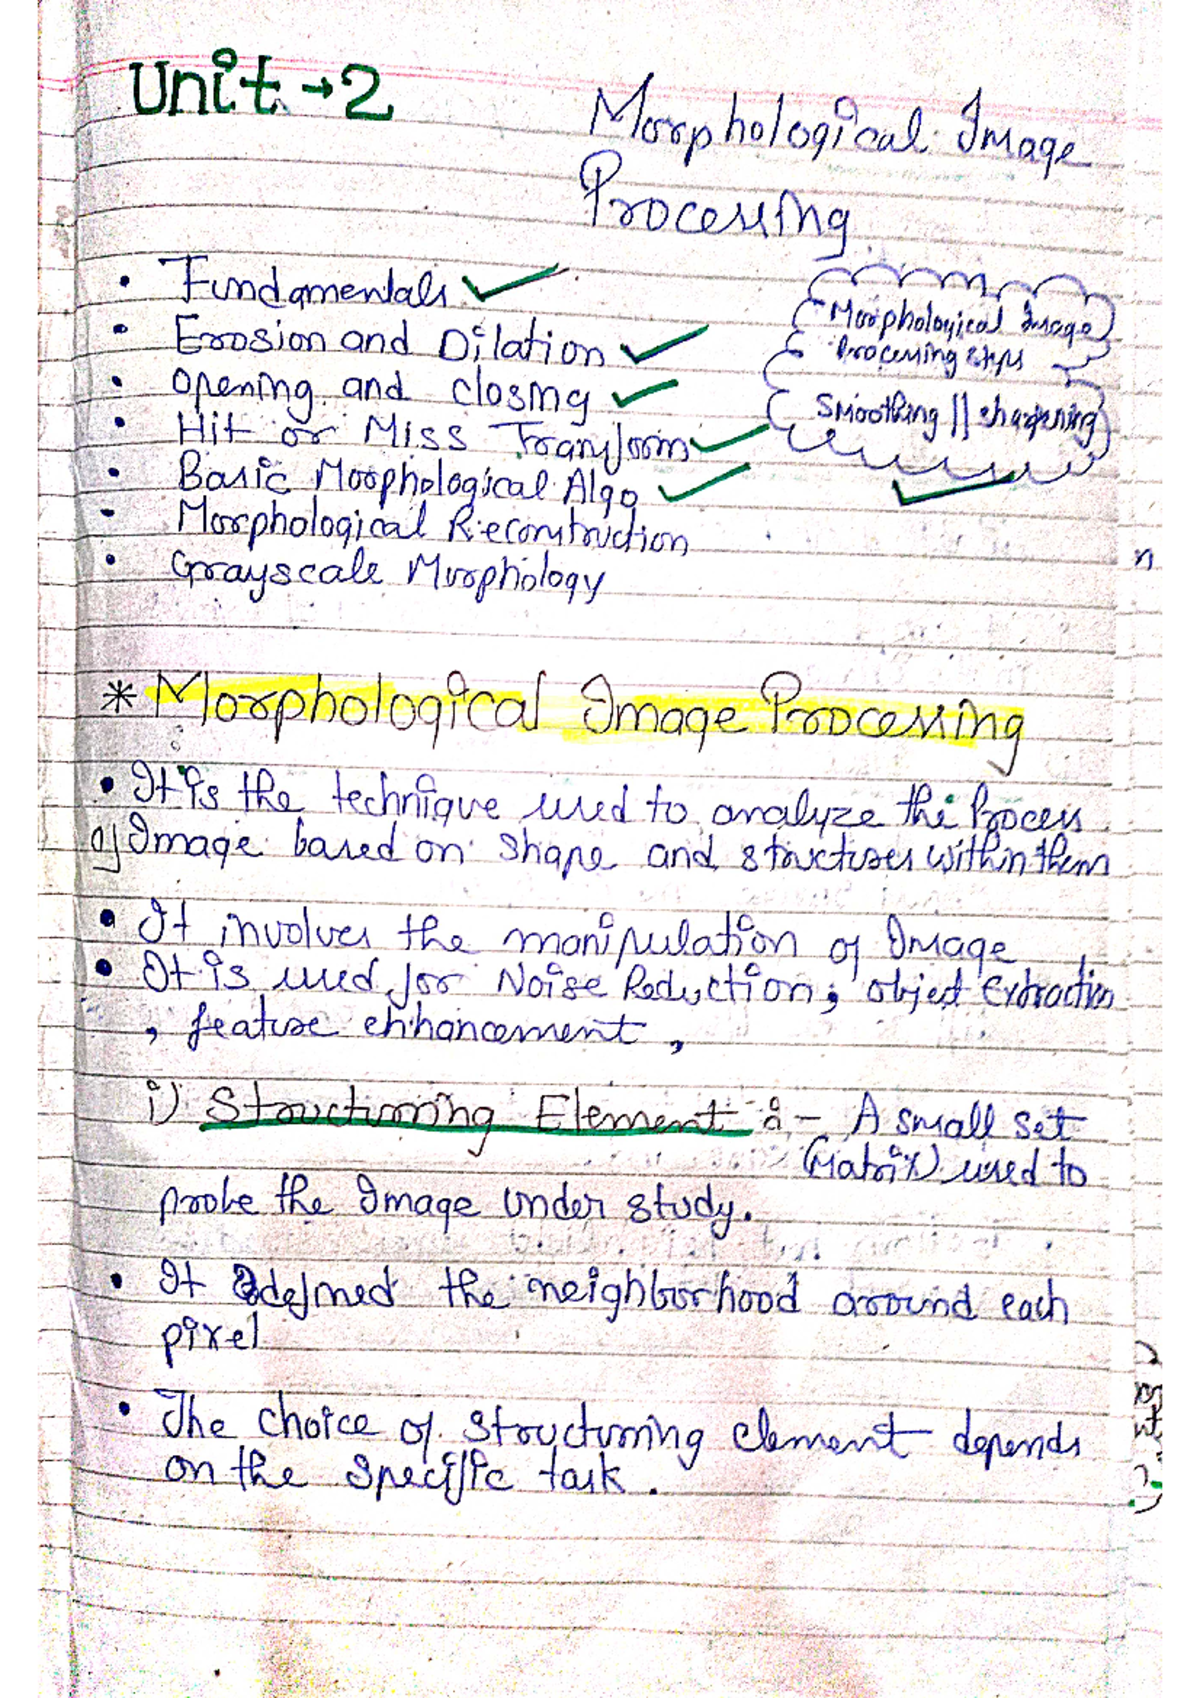 Unit → 2
Morphological Image
Processing
• Fundamentals
• Erosion and Dilation
• Opening and closing
• Hit or Miss Transform
• Basic Morphological Algo
• Morphological Reconstruction
• Grayscale Morphology
Morphological Image
Processing steps
Smoothing || sharpening
n
* Morphological Image Processing
• It is the technique used to analyze the Process
of Image based on shape and structures within them
• It involves the manipulation of Image
• It is used for Noise Reduction, object Extraction
, feature enhancement,
i) Structuring Element :- A small set
(Matrix) used to
probe the Image under study.
• It defined the neighborhood around each
pixel
• The choice of structuring element depends
on the specific task.